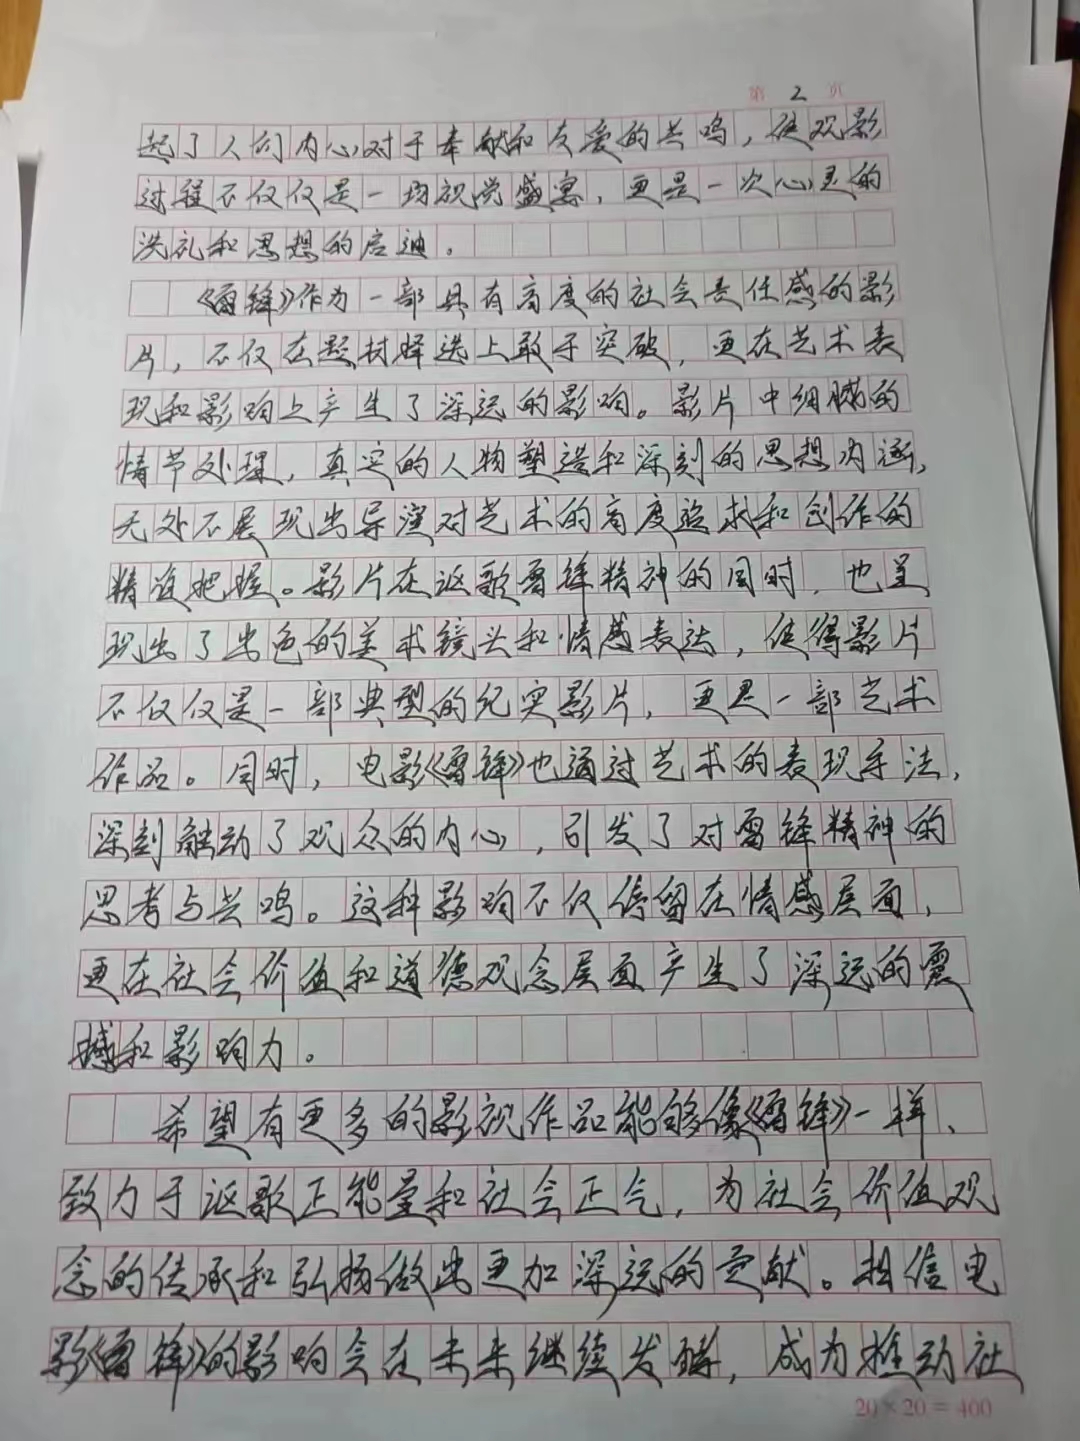 第 2 页
起了人们内心对于奉献和友爱的共鸣，使观影
过程不仅仅是一场视觉盛宴，更是一次心灵的
洗礼和思想的启迪。
《雷锋》作为一部具有高度的社会责任感的影
片，不仅在题材择选上敢于突破，更在艺术表
现和影响上产生了深远的影响。影片中细腻的
情节处理，真实的人物塑造和深刻的思想内涵，
无处不展现出导演对艺术的高度追求和创作的
精准把握。影片在讴歌雷锋精神的同时，也呈
现出了出色的美术镜头和情感表达，使得影片
不仅仅是一部典型的纪实影片，更是一部艺术
作品。同时，电影《雷锋》也通过艺术的表现手法，
深刻触动了观众的内心，引发了对雷锋精神的
思考与共鸣。这种影响不仅停留在情感层面，
更在社会价值和道德观念层面产生了深远的震
撼和影响力。
希望有更多的影视作品能够像《雷锋》一样、
致力于讴歌正能量和社会正气，为社会价值观
念的传承和弘扬做出更加深远的贡献。相信电
影《雷锋》的影响会在未来继续发酵，成为推动社
20×20=400